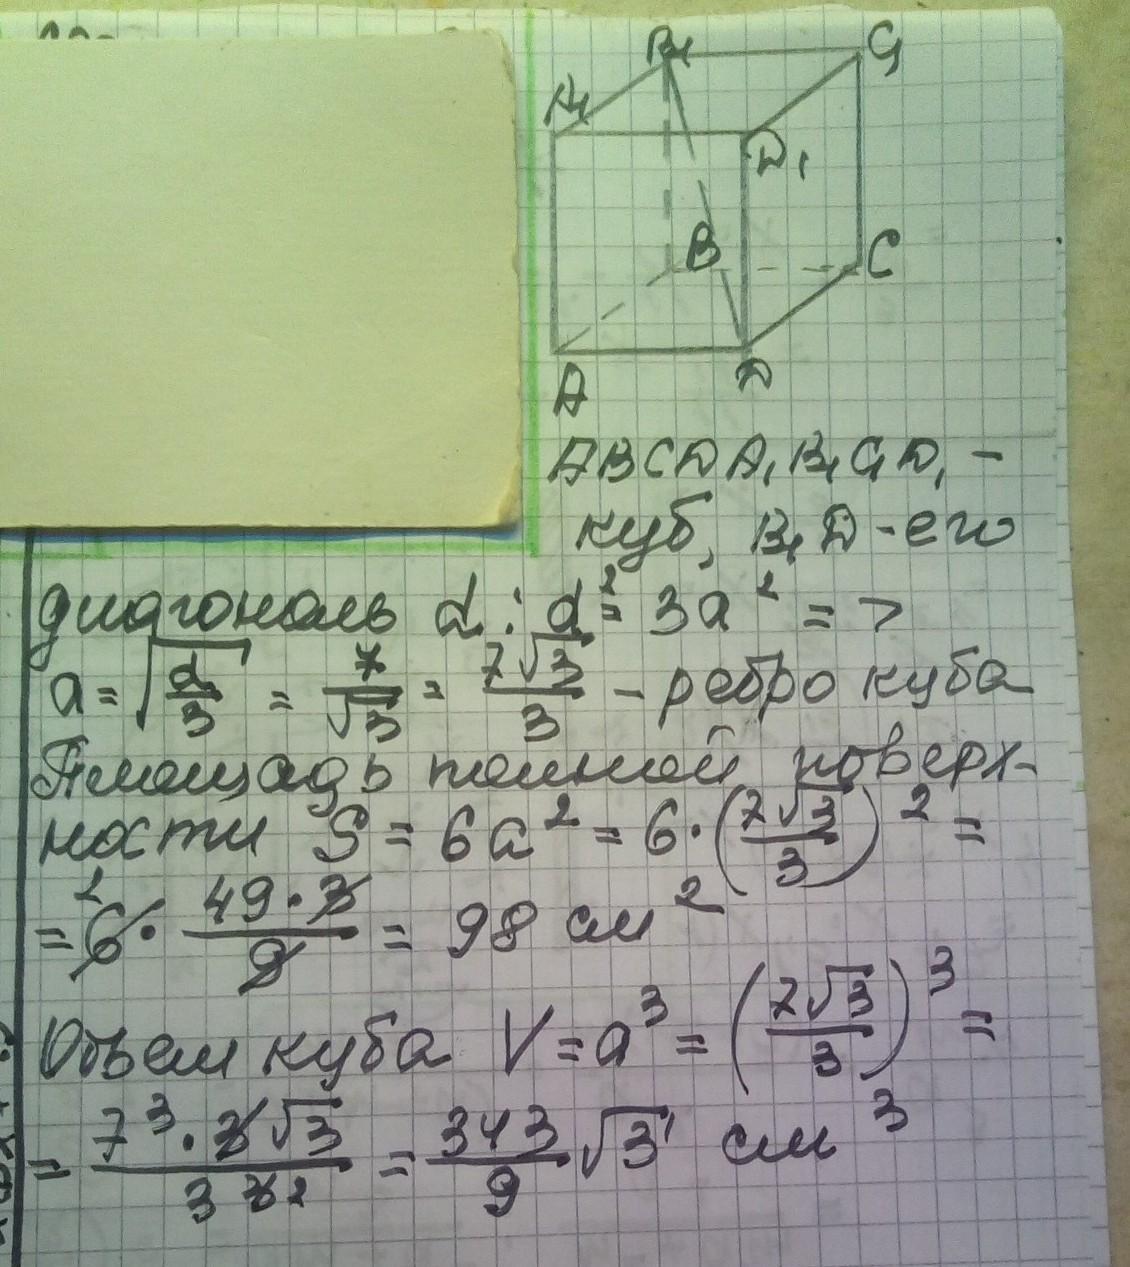 B₁ C₁
A₁ D₁
B C
A D
ABCDA₁B₁C₁D₁ -
куб, B₁D - его
диагональ d: d² = 3a² =>
a = √(d/3) = 7/√3 = 7√3/3 - ребро куба
Площадь полной поверх-
ности S = 6a² = 6·(7√3/3)² =
= 6²· 49·3/9 = 98 см²
Объем куба V = a³ = (7√3/3)³ =
= 7³·3√3/3 3² = 343/9 √3 см³